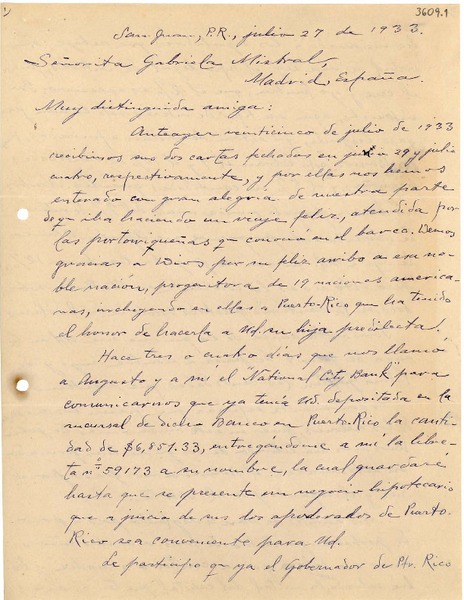 3609.1
San Juan, P.R., julio 27 de 1933.
Señorita Gabriela Mistral,
Madrid, España.
Muy distinguida amiga:
Anteayer veinticinco de julio de 1933
recibimos sus dos cartas fechadas en 29 y julio
cuatro, respectivamente, y por ellas nos hemos
enterado con gran alegría de nuestra parte
de q iba haciendo un viaje feliz, atendida por
las portorriqueñas q conoció en el barco. Demos
gracias a Dios por su feliz arribo a esa no-
ble nación, progenitora de 19 naciones america-
nas, incluyendo en ellas a Puerto-Rico que ha tenido
el honor de hacerla a Ud. su hija predilecta.
Hace tres o cuatro días que nos llamó
a Augusto y a mí el "National City Bank" para
comunicarnos que ya tenía Ud. depositada en la
sucursal de dicho Banco en Puerto-Rico la canti-
dad de $6,851.33, entregándome a mí la libre-
ta nº 59173 a su nombre, la cual guardaré
hasta que se presente un negocio hipotecario
que a juicio de sus dos apoderados de Puerto-
Rico sea conveniente para Ud.
Le participo q ya el Gobernador de Pto. Rico